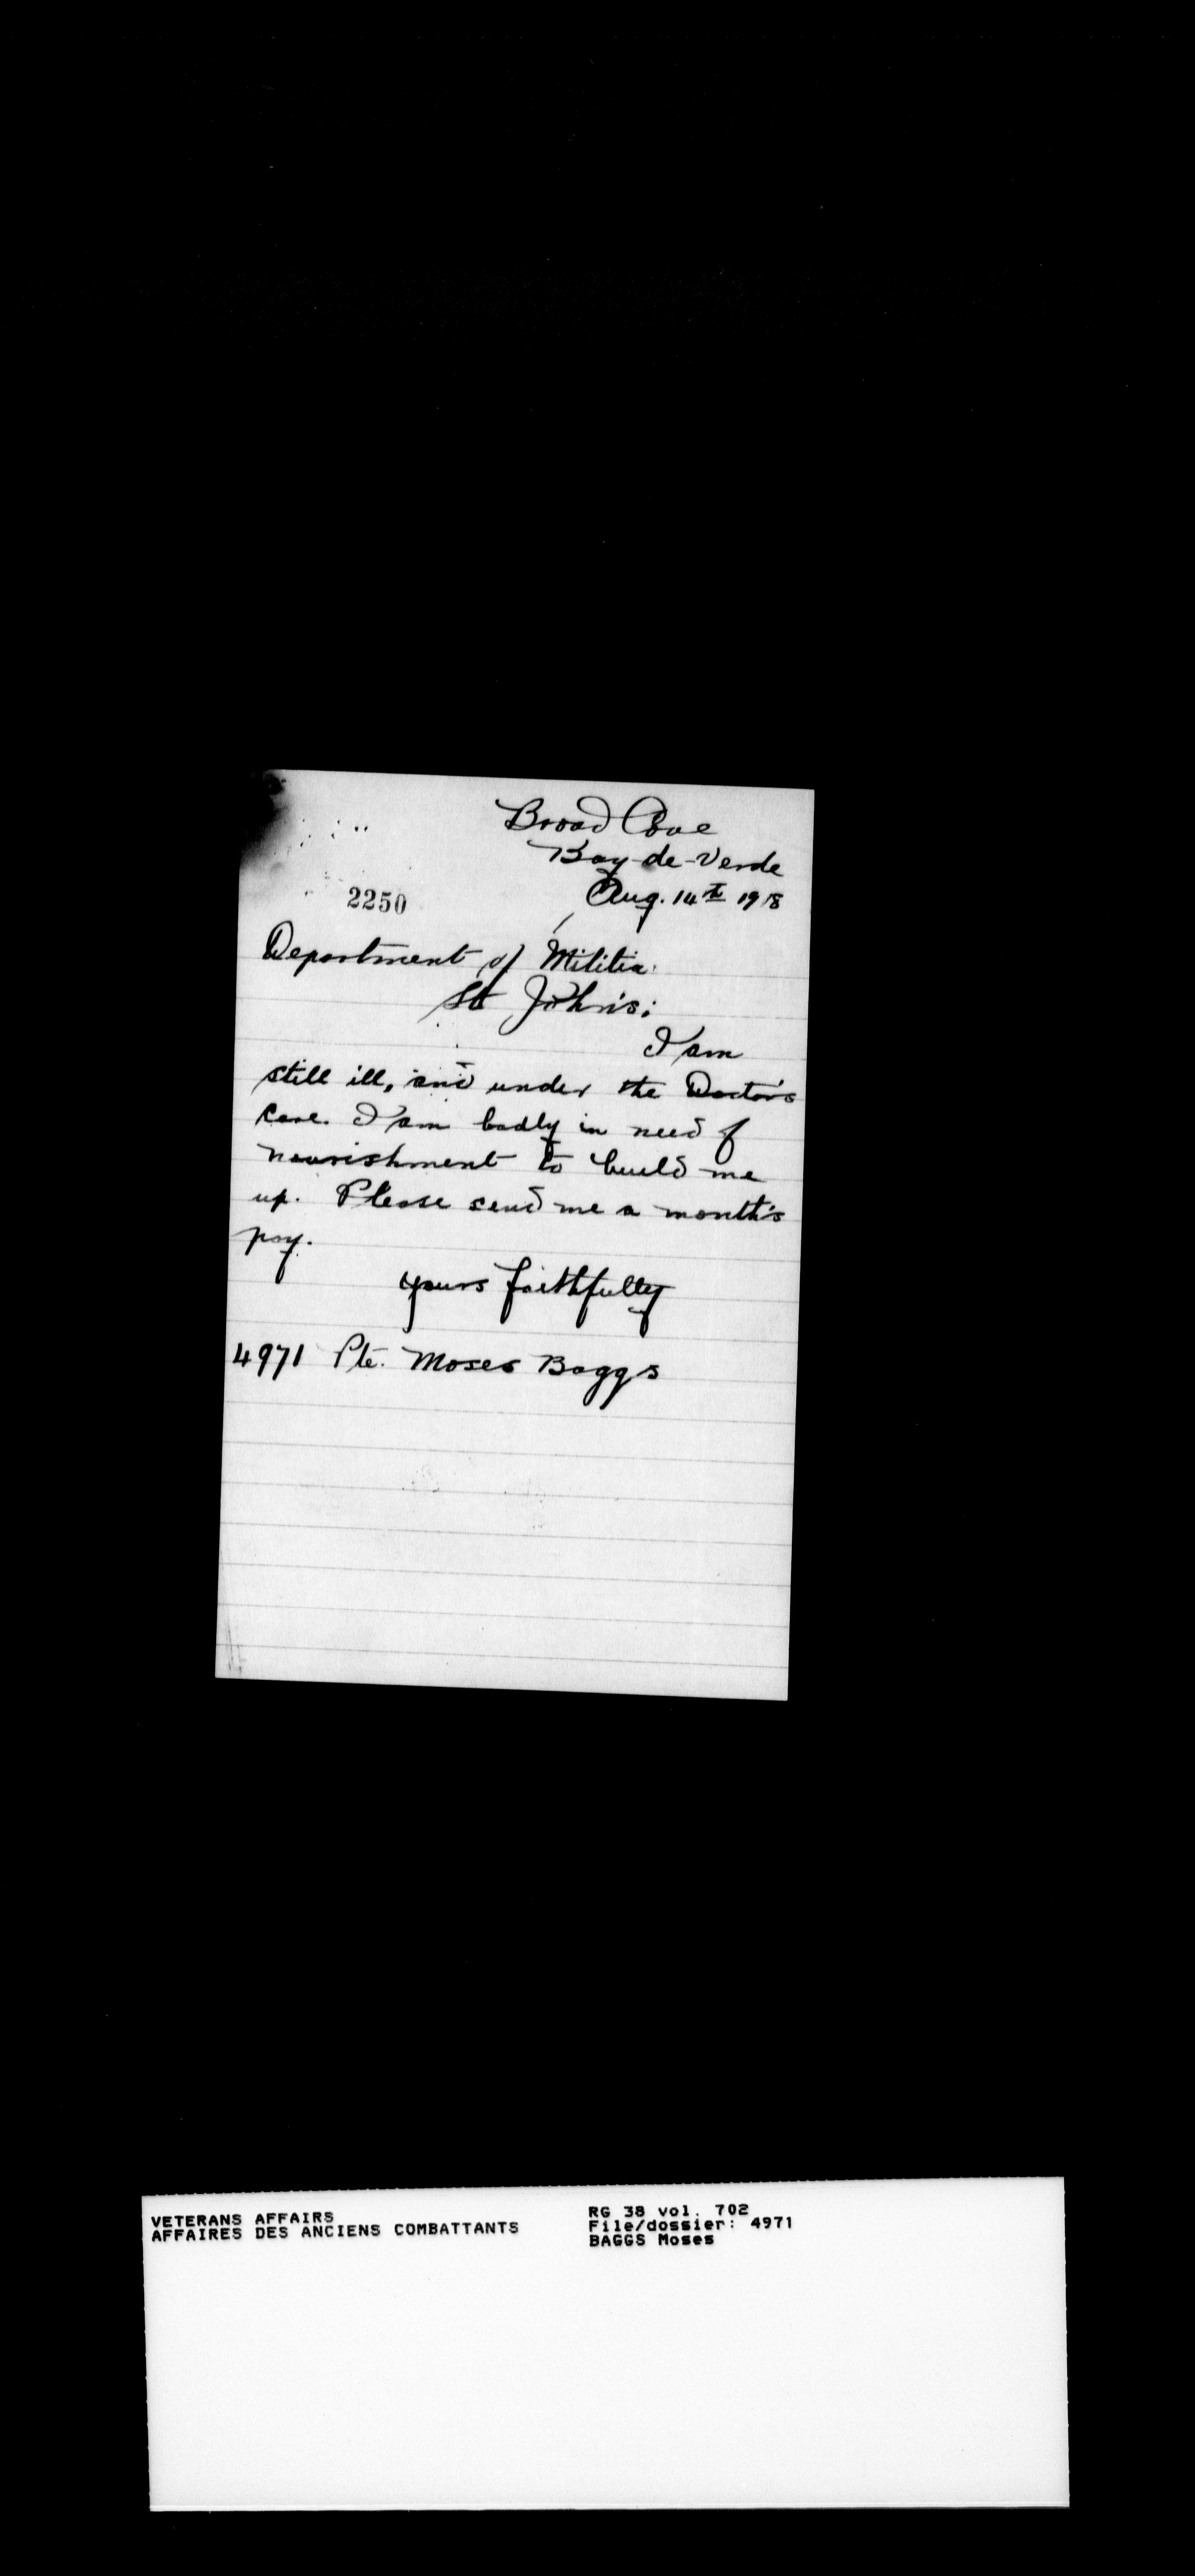 Broad Cove
Bay-de-Verde
Aug. 14th 1918
2250
Department of Militia.
St John's:
I am
still ill, and under the Doctor's
care. I am badly in need of
nourishment to build me
up. Please send me a month's
pay.
yours faithfully
4971 Pte. Moses Baggs
VETERANS AFFAIRS
AFFAIRES DES ANCIENS COMBATTANTS
RG 38 vol. 702
File/dossier: 4971
BAGGS Moses